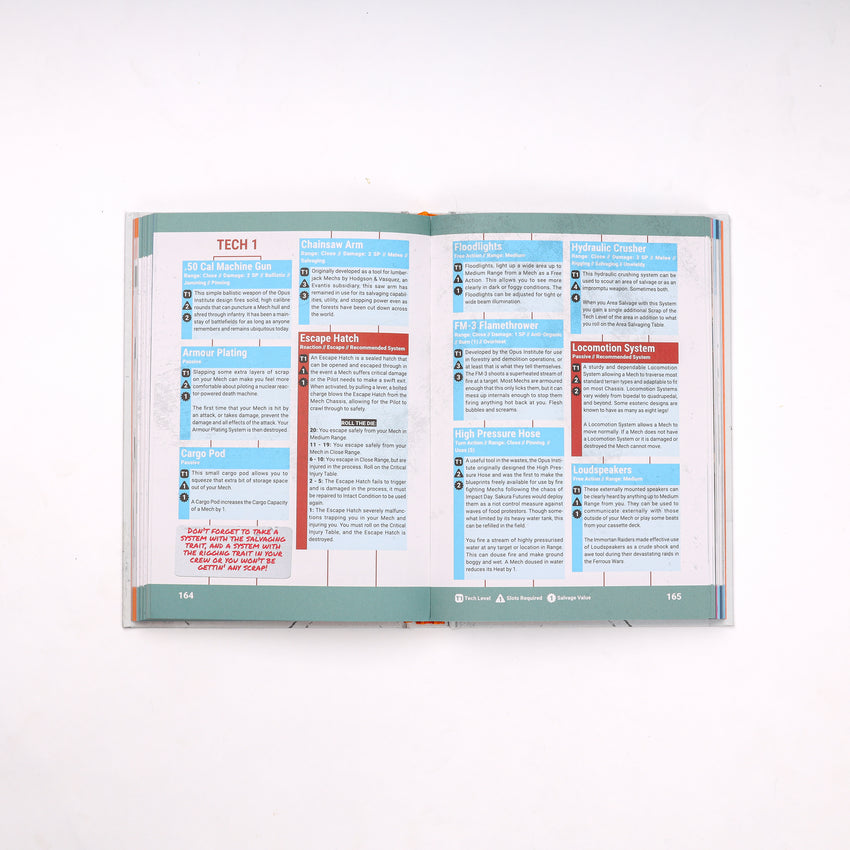 TECH 1
.50 Cal Machine Gun
Range: Close // Damage: 2 SP // Ballistic //
Jamming // Pinning
T1
This simple ballistic weapon of the Opus
Institute design fires solid, high calibre
rounds that can puncture a Mech hull and
shred through infantry. It has been a main-
stay of battlefields for as long as anyone
remembers and remains ubiquitous today.
2
2
Armour Plating
Passive
T1
Slapping some extra layers of scrap
on your Mech can make you feel more
comfortable about piloting a nuclear reac-
tor-powered death machine.
The first time that your Mech is hit by
an attack, or takes damage, prevent the
damage and all effects of the attack. Your
Armour Plating System is then destroyed.
2
1
Cargo Pod
Passive
T1
This small cargo pod allows you to
squeeze that extra bit of storage space
out of your Mech.
A Cargo Pod increases the Cargo Capacity
of a Mech by 1.
1
1
DON'T FORGET TO TAKE A
SYSTEM WITH THE SALVAGING
TRAIT, AND A SYSTEM WITH
THE RIGGING TRAIT IN YOUR
CREW OR YOU WON'T BE
GETTIN' ANY SCRAP!
Chainsaw Arm
Range: Close // Damage: 3 SP // Melee //
Salvaging
T1
Originally developed as a tool for lumber-
jack Mechs by Hodgson & Vasquez, an
Evantis subsidiary, this saw arm has
remained in use for its salvaging capabil-
ities, utility, and stopping power even as
the forests have been cut down across
the world.
3
3
Escape Hatch
Reaction // Escape // Recommended System
T1
An Escape Hatch is a sealed hatch that
can be opened and escaped through in
the event a Mech suffers critical damage
or the Pilot needs to make a swift exit.
When activated, by pulling a lever, a bolted
charge blows the Escape Hatch from the
Mech Chassis, allowing for the Pilot to
crawl through to safety.
1
1
ROLL THE DIE:
20: You escape safely from your Mech in
Medium Range.
11 - 19: You escape safely from your
Mech in Close Range.
6 - 10: You escape in Close Range, but are
injured in the process. Roll on the Critical
Injury Table.
2 - 5: The Escape Hatch fails to trigger
and is damaged in the process, it must
be repaired to Intact Condition to be used
again.
1: The Escape Hatch severely malfunc-
tions trapping you in your Mech and
injuring you. You must roll on the Critical
Injury Table, and the Escape Hatch is
destroyed.
164
Floodlights
Free Action // Range: Medium
T1
Floodlights, light up a wide area up to
Medium Range from a Mech as a Free
Action. This allows you to see more
clearly in dark or foggy conditions. The
Floodlights can be adjusted for tight or
wide beam illumination.
1
1
FM-3 Flamethrower
Range: Close // Damage: 1 SP // Anti-Organic
// Burn (1) // Overheat
T1
Developed by the Opus Institute for use
in forestry and demolition operations, or
at least that is what they tell themselves.
The FM-3 shoots a superheated stream of
fire at a target. Most Mechs are armoured
enough that this only licks them, but it can
mess up internals enough to stop them
firing anything hot back at you. Flesh
bubbles and screams.
3
3
High Pressure Hose
Turn Action // Range: Close // Pinning //
Uses (5)
T1
A useful tool in the wastes, the Opus Insti-
tute originally designed the High Pres-
sure Hose and was the first to make the
blueprints freely available for use by fire
fighting Mechs following the chaos of
Impact Day. Sakura Futures would deploy
them as a riot control measure against
waves of food protestors. Though some-
what limited by its heavy water tank, this
can be refilled in the field.
You fire a stream of highly pressurised
water at any target or location in Range.
This can douse fire and make ground
boggy and wet. A Mech doused in water
reduces its Heat by 1.
2
2
Hydraulic Crusher
Range: Close // Damage: 3 SP // Melee //
Rigging // Salvaging // Unwieldy
T1
This hydraulic crushing system can be
used to scour an area of salvage or as an
impromptu weapon. Sometimes both.
When you Area Salvage with this System
you gain a single additional Scrap of the
Tech Level of the area in addition to what
you roll on the Area Salvaging Table.
4
Locomotion System
Passive // Recommended System
T1
A sturdy and dependable Locomotion
System allowing a Mech to traverse most
standard terrain types and adaptable to fit
on most Chassis. Locomotion Systems
vary widely from bipedal to quadrupedal,
and beyond. Some esoteric designs are
known to have as many as eight legs!
A Locomotion System allows a Mech to
move normally. If a Mech does not have
a Locomotion System or it is damaged or
destroyed the Mech cannot move.
2
2
Loudspeakers
Free Action // Range: Medium
T1
These externally mounted speakers can
be clearly heard by anything up to Medium
Range from you. They can be used to
communicate externally with those
outside of your Mech or play some beats
from your cassette deck.
The Immortan Raiders made effective use
of Loudspeakers as a crude shock and
awe tool during their devastating raids in
the Ferrous Wars.
1
1
T1 Tech Level 1 Slots Required 1 Salvage Value
165